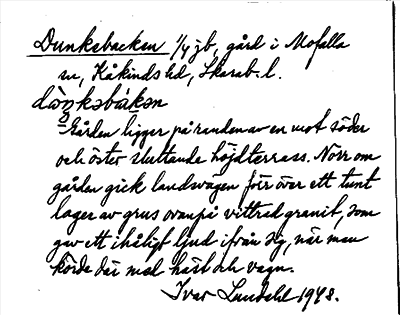 Dunkebacken 1/4 jb, gård i Mofalla
sn, Kåkinds hd, Skarab. l.
Gården ligger på randen av en mot söder
och öster sluttande höjdterrass. Norr om
gården gick landsvägen förr över ett tunt
lager av grus ovanpå vittrad granit, som
gav ett ihåligt ljud ifrån sig, när man
körde där med häst och vagn.
Ivar Lundahl 1948.